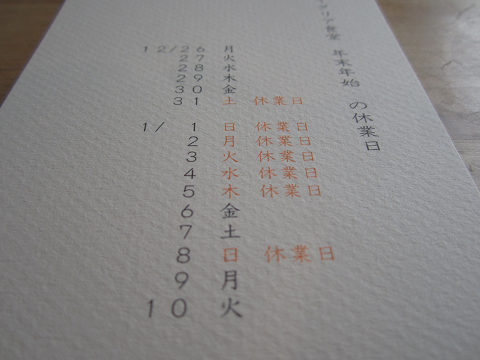 タリア食堂 年末年始 の休業日
12/26 月
27 火
28 水
29 木
30 金
31 土 休業日
1/ 1 日 休業日
2 月 休業日
3 火 休業日
4 水 休業日
5 木 休業日
6 金
7 土
8 日 休業日
9 月
10 火